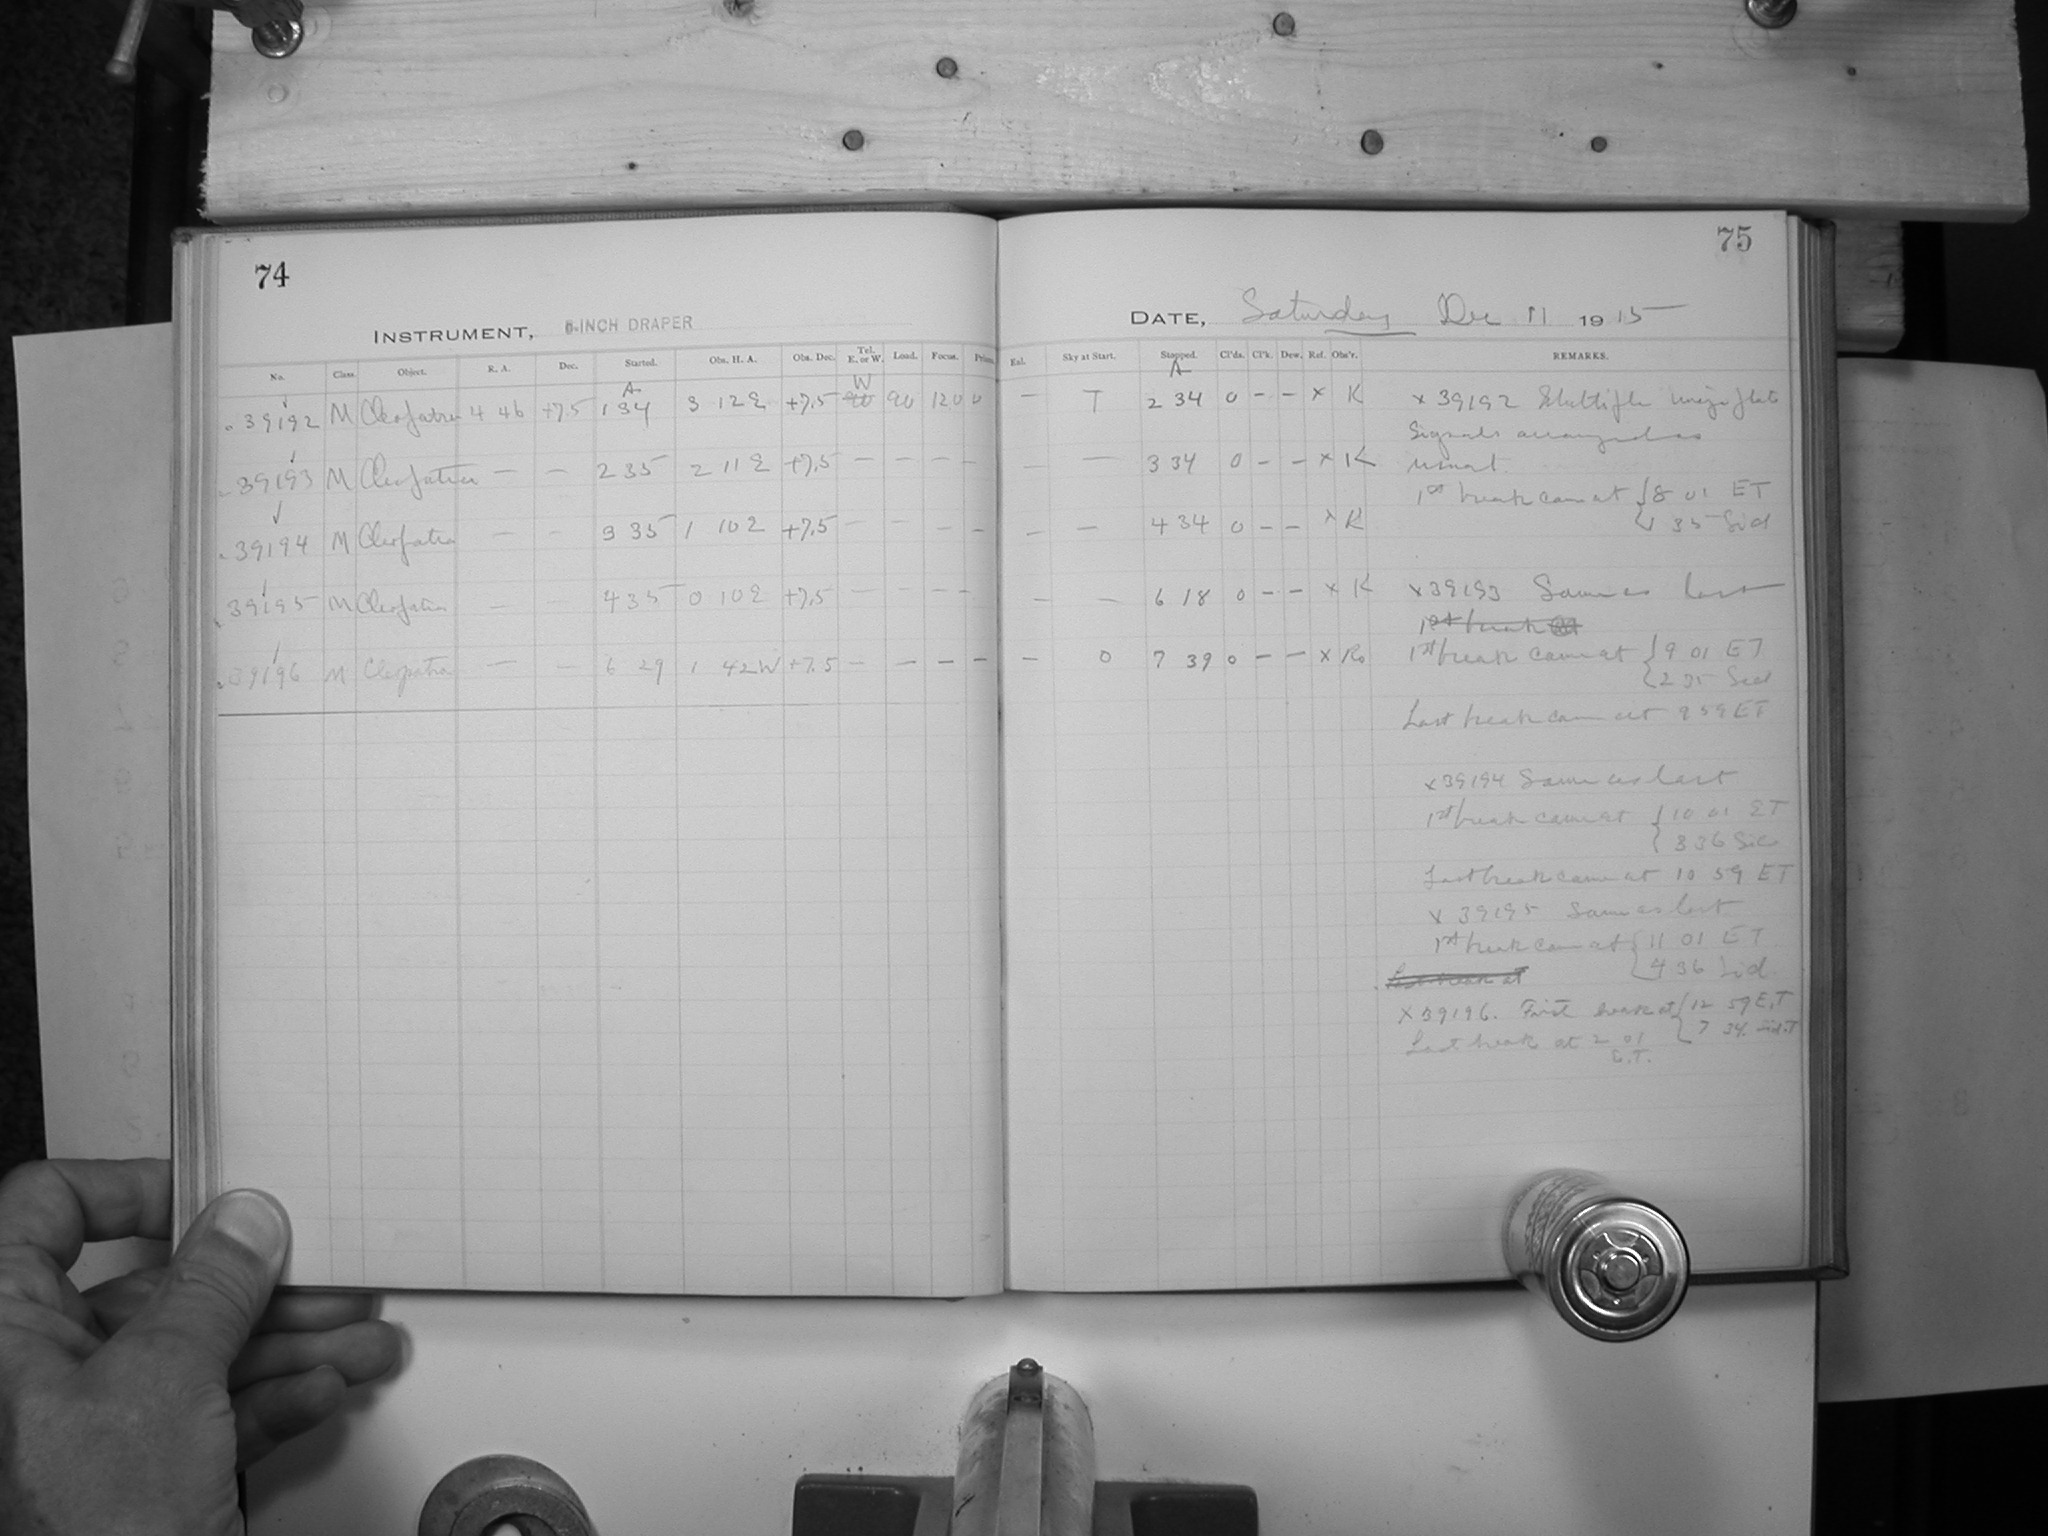 74
75
INSTRUMENT, 8-INCH DRAPER
DATE, Saturday Dec 11 1915
No. Class. Object. R. A. Dec. Started. Obs. H. A. Obs. Dec. Tel. E. or W. Load. Focus. Prism. Exl. Sky at Start. Stopped. Cl'ds. Cl'k. Dew. Ref. Obs'r. REMARKS.
A W A
39192 M Cleopatra 4 46 +7.5 1 34 3 12 E +7.5 90 12.0 0 — T 2 34 0 – – x K
39193 M Cleopatra — — 2 35 2 11 E +7.5 — — — — — — 3 34 0 – – x K
39194 M Cleopatra — — 3 35 1 10 E +7.5 — — — — — — 4 34 0 – – x K
39195 M Cleopatra — — 4 35 0 10 E +7.5 — — — — — — 6 18 0 – – x K
39196 M Cleopatra — — 6 29 1 42 W +7.5 — — — — — 0 7 39 0 – – x Ro
x 39192 Multiple image plate
Signals arranged as
usual.
1st break came at { 8 01 ET
1 35 Sid
x 39193 Same as last
1st break at
1st break came at { 9 01 ET
2 35 Sid
Last break came at 9 59 ET
x 39194 Same as last
1st break came at { 10 01 ET
3 36 Sid
Last break came at 10 59 ET
x 39195 Same as last
1st break came at { 11 01 ET
4 36 Sid
Last break at
x 39196. First break at { 12 59 E.T
7 34 sid. T
Last break at 2 01
E.T.